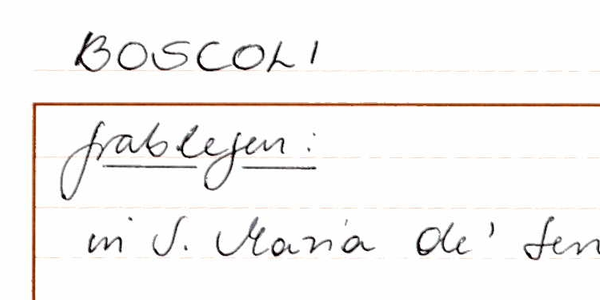 BOSCOLI
Grablegen:
in S. Maria de'